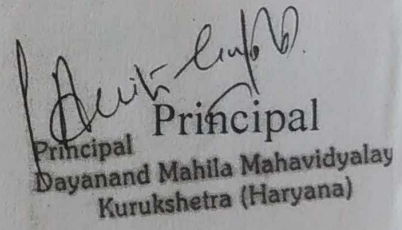 Principal
Principal
Dayanand Mahila Mahavidyalay
Kurukshetra (Haryana)